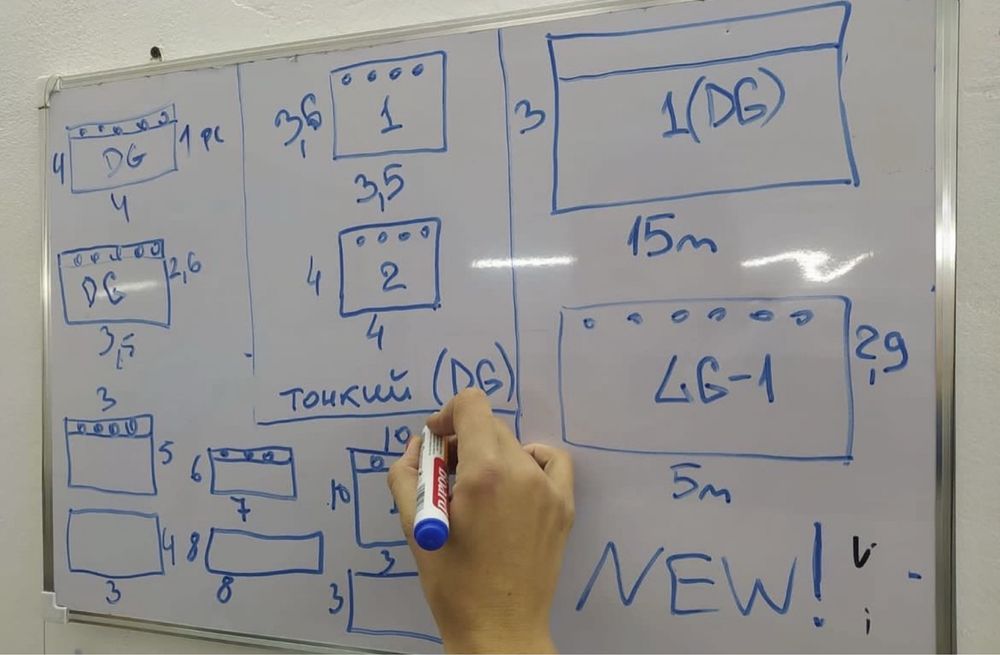 4 DG 1 pc
4
DG 2,6
3,5
3
5
4
3
6
7
8
8
3,6 1
3,5
4 2
4
тонкий (DG)
10
10
3
3
3 1(DG)
15m
LG-1 2,9
5m
NEW!